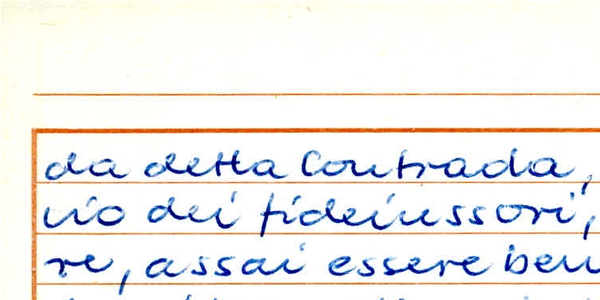 da detta Contrada,
nio dei fideiussori,
re, assai essere ben